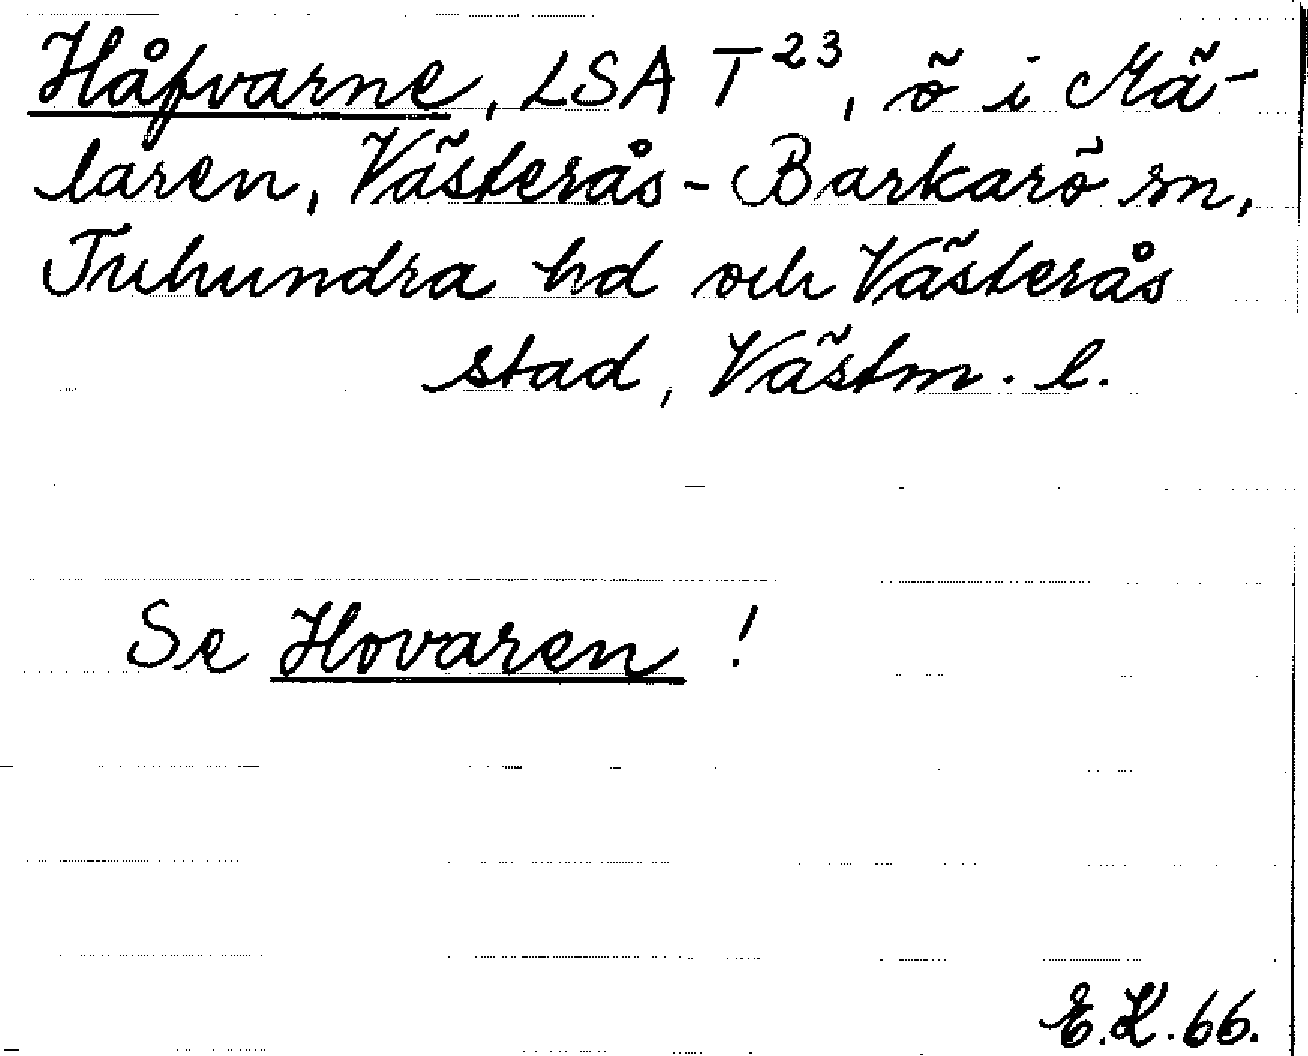 Håfvarne, LSA T²³, ö i Mä-
laren, Västerås-Barkarö sn,
Tuhundra hd och Västerås
stad, Västm. l.
Se Hovaren !
E.K. 66.